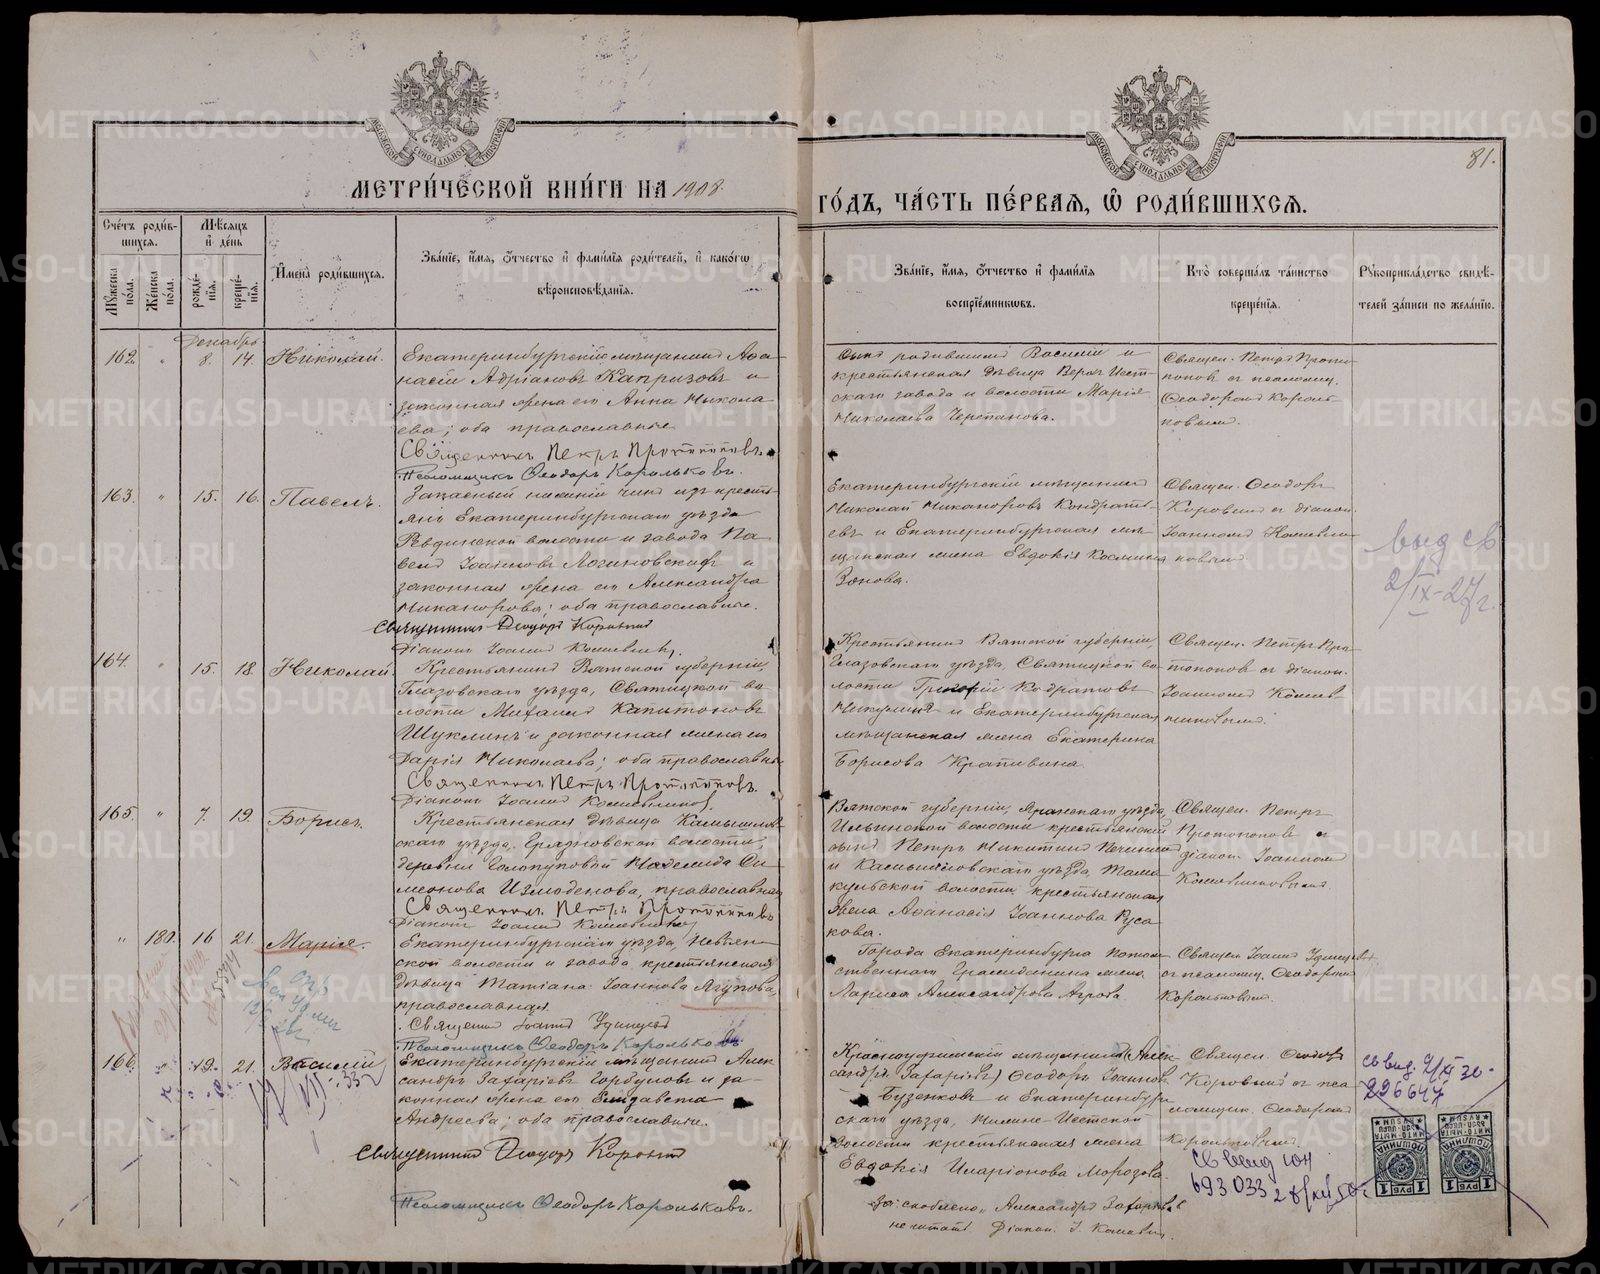 МЕТРИ́ЧЕСКОЙ КНИ́ГИ НА 1908
ГО́ДЪ, ЧА́СТЬ ПЕ́РВАЯ, Ѡ РОДИ́ВШИХСЯ.
81.
Сче́тъ роди́в-
шихся.
Мѣ́сяцъ
и҆ де́нь
Му́жеска по́ла.
Же́нска по́ла.
рожде́-
нїя.
креще́-
нїя.
И҆мена̀ роди́вшихся.
Зва́нїе, и҆́мя, ѻ҆́тчество и҆ фами́лїя роди́телей, и҆ како́гѡ
вѣроисповѣ́данїя.
Зва́нїе, и҆́мя, ѻ҆́тчество и҆ фами́лїя
воспрїе́мникѡвъ.
Кто̀ соверша́лъ та́инство
креще́нїя.
Рꙋкоприкла́дство свидѣ́-
телей за́писи по жела́нїю.
Декабрь
162. " 8. 14. Николай.
Екатеринбургскій мѣщанинъ Афа-
насій Адріановъ Капризовъ и
законная жена его Анна Никола-
ева; оба православные
Священникъ Петръ Протопоповъ.
Псаломщикъ Ѳеодоръ Корольковъ.
сынъ родившихъ Василій и
крестьянская дѣвица Верхъ-Исет-
скаго завода и волости Марія
Николаева Черепанова.
Священ. Петръ Прото-
поповъ съ псаломщ.
Ѳеодоромъ Король-
ковымъ.
163. " 15. 16. Павелъ.
Запасный нижній чинъ изъ кресть-
янъ Екатеринбургскаго уѣзда
Ревдинской волости и завода Па-
велъ Іоанновъ Логиновскихъ и
законная жена его Александра
Никанорова; оба православные.
Священникъ Ѳеодоръ Коровинъ
Діаконъ Іоаннъ
Екатеринбургскій мѣщанинъ
Николай Никаноровъ Кондрать-
евъ и Екатеринбургская мѣ-
щанская жена Евдокія Космина
Зонова.
Священ. Ѳеодоръ
Коровинъ съ діакон.
Іоанномъ
ковымъ
выд св
2/IX-27 г.
164. " 15. 18. Николай
Крестьянинъ Вятской губерніи,
Глазовскаго уѣзда, Святицкой во-
лости Михаилъ Капитоновъ
Шуклинъ и законная жена его
Дарія Николаева; оба православны
Священникъ Петръ Протопоповъ.
Діаконъ Іоаннъ
Крестьянинъ Вятской губерніи,
Глазовскаго уѣзда, Святицкой во-
лости Григорій Кодратовъ
Никулинъ и Екатеринбургская
мѣщанская жена Екатерина
Борисова Крапивина
Священ. Петръ Про-
топоповъ съ діакон.
Іоанномъ
никовымъ.
165. " 7. 19. Борисъ.
Крестьянская дѣвица Камышлов-
скаго уѣзда, Грязновской волости,
деревни Надежда Си-
меонова Измоденова, православная
Священникъ Петръ Протопоповъ
Діаконъ Іоаннъ
Вятской губерніи, Яранскаго уѣзда,
Ильинской волости крестьянскій
сынъ Петръ Никитинъ
и Камышловскаго уѣзда,
кульской волости крестьянская
жена Афанасія Іоаннова Руса-
кова.
Священ. Петръ
Протопоповъ съ
діакон. Іоанномъ
" 180. 16 21. Марія.
Екатеринбургскаго уѣзда, Невьян-
ской волости и завода крестьянская
дѣвица Татіана Іоаннова Ягупова,
православная.
Священникъ Іоаннъ Удинцевъ
Псаломщикъ Ѳеодоръ Корольковъ.
Города Екатеринбурга потом-
ственнаго Гражданина жена
Лариса Александрова
Священ. Іоаннъ Удинцевъ
съ псаломщ. Ѳеодоромъ
Корольковымъ.
166. " 19. 21. Василій
Екатеринбургскій мѣщанинъ Алек-
сандръ Захаріевъ Горбуновъ и за-
конная жена его Елизавета
Андреева; оба православные.
Священникъ Ѳеодоръ Коровинъ
Псаломщикъ Ѳеодоръ Корольковъ.
Красноуфимскій мѣщанинъ (Алек-
сандръ Захаріевъ) Ѳеодоръ Іоаннов
Бузенковъ и Екатеринбург-
скаго уѣзда, Нижне-Исетской
волости крестьянская жена
Евдокія Иларіонова Морозова.
За скоблено, "Александръ Захаріевъ"
не читать. Діакон. І.
Священ. Ѳеодоръ
Коровинъ съ пса-
ломщик. Ѳеодоромъ
Корольковымъ.
св выд ЮН
693033
св выд. 2/XI 30.
226647
1 РУБ 1
ПОШЛИНА
1 РУБ 1
ПОШЛИНА
METRIKI.GASO-URAL.RU